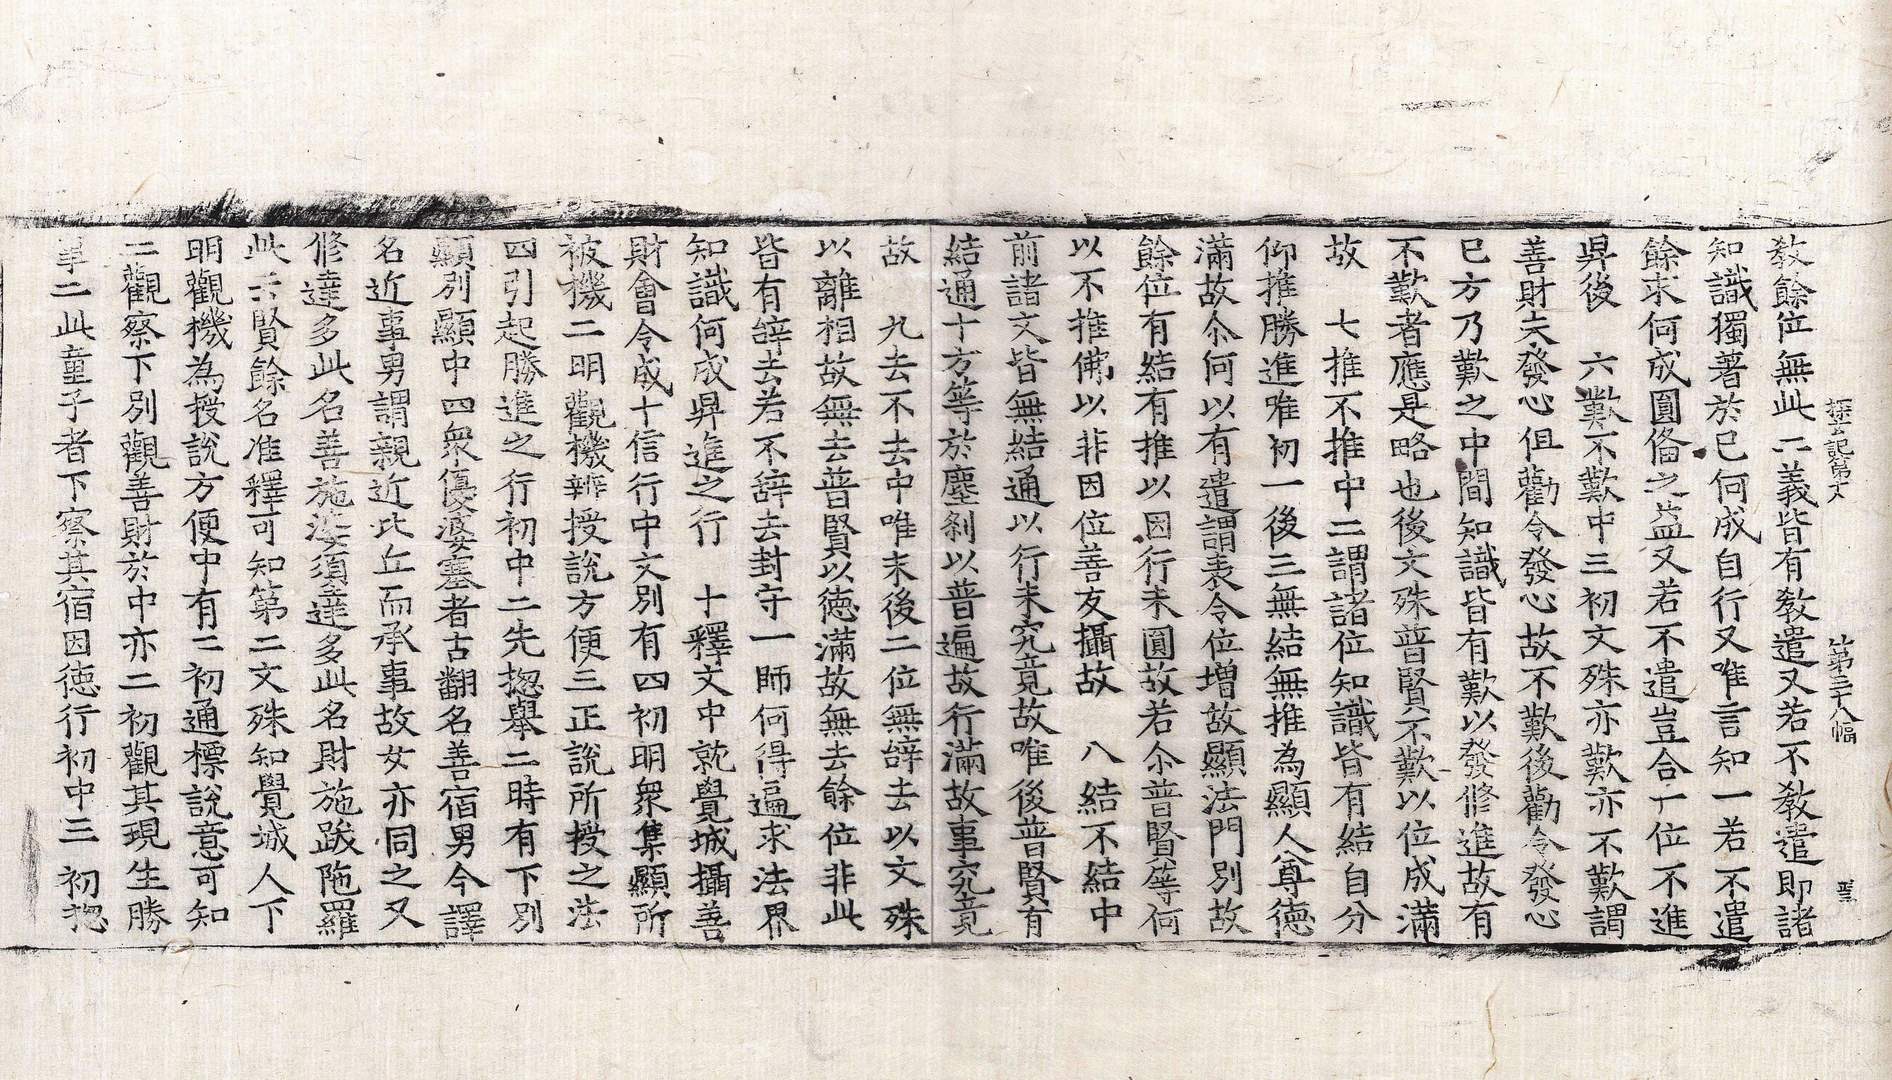 探玄記第十八　第三十八幅
教餘位無此二義皆有教遣又若不教遣即諸
知識獨著於已何成自行又唯言知一若不遣
餘求何成圓俻之益又若不遣豈合十位不進
昇後　六歎不歎中三初文殊亦歎亦不歎謂
善財夫發心但勸令發心故不歎後勸令發心
已方乃歎之中間知識皆有歎以發修進故有
不歎者應是略也後文殊普賢不歎以位成滿
故　七推不推中二謂諸位知識皆有結自分
仰推勝進唯初一後三無結無推為顯人尊德
滿故尒何以有遣謂表令位增故顯法門別故
餘位有結有推以因行未圓故若尒普賢等何
以不推佛以非因位善友攝故　八結不結中
前諸文皆無結通以行未究竟故唯後普賢有
結通十方等於塵刹以普遍故行滿故事究竟
故　九去不去中唯末後二位無辝去以文殊
以離相故無去普賢以德滿故無去餘位非此
皆有辝去若不辝去封守一師何得遍求法界
知識何成昇進之行　十釋文中就覺城攝善
財會令成十信行中文別有四初明衆集顯所
被機二明觀機辨授說方便三正說所授之法
四引起勝進之行初中二先揔舉二時有下別
顯別顯中四衆優婆塞者古翻名善宿男今譯
名近事男謂親近比丘而承事故女亦同之又
修達多此名善施湏達多此名財施跋陁羅
此云賢餘名准釋可知第二文殊知覺城人下
明觀機為授說方便中有二初通標說意可知
二觀察下別觀善財於中亦二初觀其現生勝
事二此童子者下察其宿因德行初中三初揔